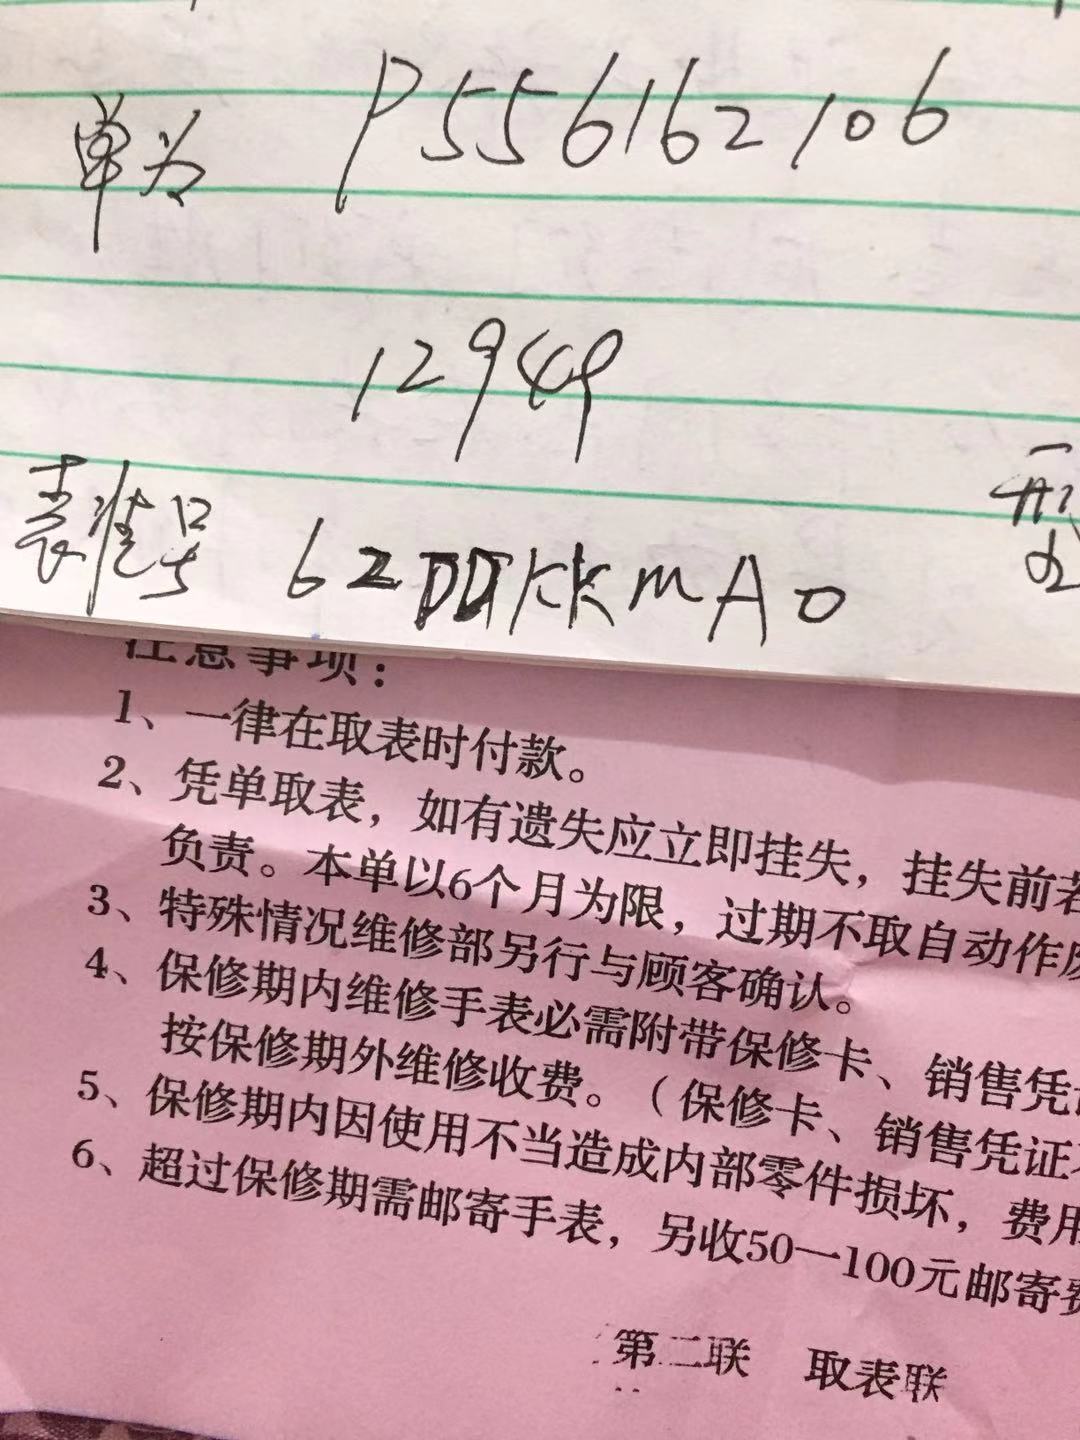 单 P556162106
12949
表 号 62DDKKMA0
型
注意事项：
1、一律在取表时付款。
2、凭单取表，如有遗失应立即挂失，挂失前若
负责。本单以6个月为限，过期不取自动作废
3、特殊情况维修部另行与顾客确认。
4、保修期内维修手表必需附带保修卡、销售凭证
按保修期外维修收费。（保修卡、销售凭证
5、保修期内因使用不当造成内部零件损坏，费用
6、超过保修期需邮寄手表，另收50一100元邮寄费
第二联 取表联